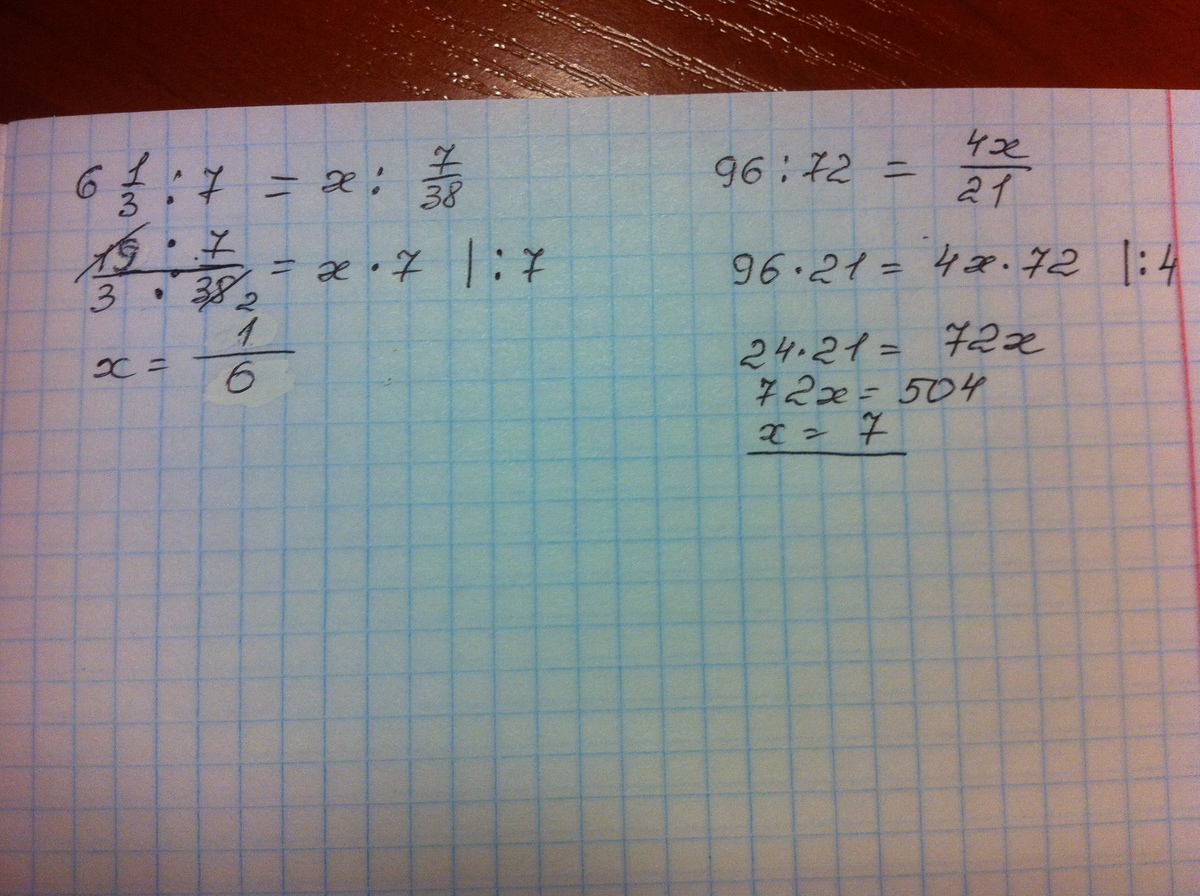 6 1/3 : 7 = x : 7/38
19 · 7 / 3 · 38 2 = x · 7 | : 7
x = 1/6
96 : 72 = 4x/21
96 · 21 = 4x · 72 | : 4
24 · 21 = 72x
72x = 504
x = 7